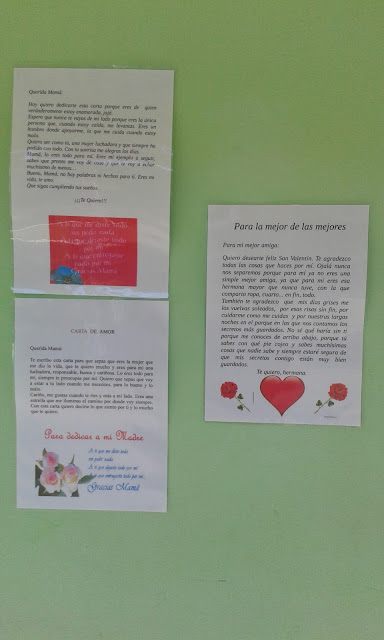 Querida Mamá:
Hoy quiero dedicarte esta carta porque eres de quien
verdaderamente estoy enamorada, jaja.
Espero que nunca te vayas de mi lado porque eres la única
persona que, cuando estoy caída, me levantas. Eres un
hombro donde apoyarme, la que me cuida cuando estoy
mala.
Quiero ser como tú, una mujer luchadora y que siempre ha
podido con todo. Con tu sonrisa me alegras los días.
Mamá, lo eres todo para mí. Eres mi ejemplo a seguir,
sabes que pronto me voy de casa y que te voy a echar
muchísimo de menos...
Bueno, Mamá, no hay palabras ni hechos para ti. Eres mi
vida, te amo.
Que sigas cumpliendo tus sueños.
¡¡¡Te Quiero!!!
A ti que me diste todo
sin pedir nada.
A ti que dejaste todo
por mí.
A ti que entregaste
todo por mí.
Gracias Mamá
CARTA DE AMOR
Querida Mamá:
Te escribo esta carta para que sepas que eres la mujer que
me dio la vida, que te quiero mucho y eres para mí una
luchadora, responsable, buena y cariñosa. Lo eres todo para
mí, siempre te preocupas por mí. Quiero que sepas que voy
a estar a tu lado cuando me necesites, para lo bueno y lo
malo.
Cariño, me gustas cuando te ríes y estás a mi lado. Eres una
estrella que me iluminas el camino por donde voy siempre.
Con esta carta quiero decirte lo que siento por ti y lo mucho
que te quiero.
Para dedicar a mi Madre
A ti que me diste todo
sin pedir nada.
A ti que dejaste todo por mí
A ti que entregaste todo por mí.
Gracias Mamá
Para la mejor de las mejores
Para mi mejor amiga:
Quiero desearte feliz San Valentín. Te agradezco
todas las cosas que haces por mí. Ojalá nunca
nos separemos porque para mí ya no eres una
simple mejor amiga, ya que para mí eres esa
hermana mayor que nunca tuve, con la que
comparto ropa, cuarto... en fin, todo.
También te agradezco que mis días grises me
los vuelvas soleados, por esas risas sin fin, por
cuidarme como me cuidas y por nuestras largas
noches en el porque en las que nos contamos los
secretos más guardados. No sé qué haría sin ti
porque me conoces de arriba abajo, porque tú
sabes con qué pie cojeo y sabes muchísimas
cosas que nadie sabe y siempre estaré segura de
que mis secretos contigo están muy bien
guardados.
Te quiero, hermana.